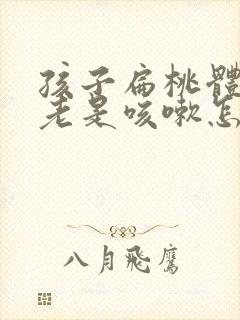 孩子扁桃體
老是咳嗽怎
八月飛鷹